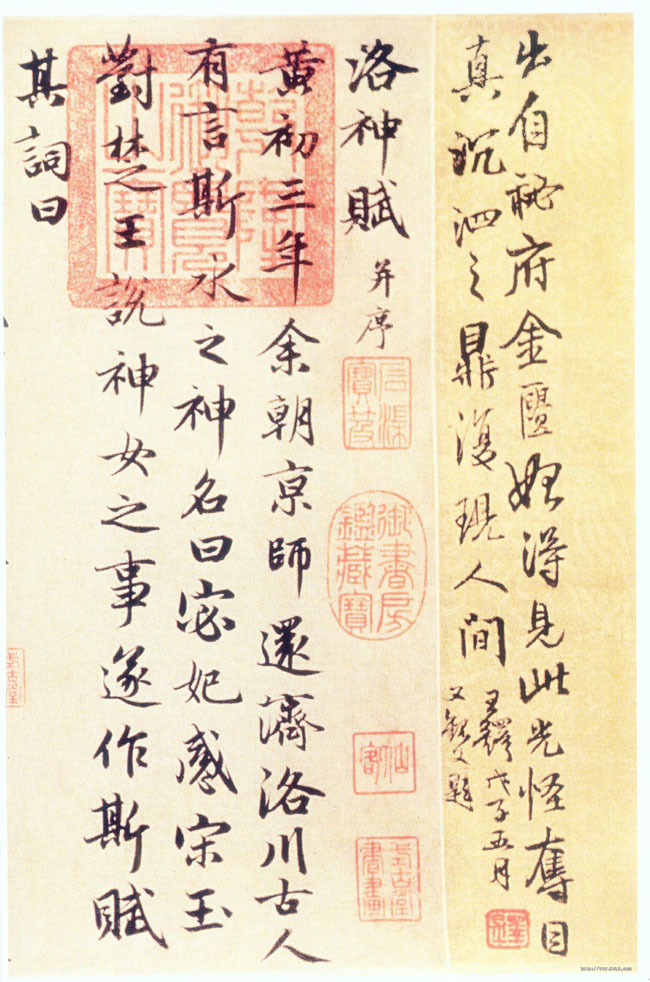 出自祕府金匱始得見此光怪奪目
真沉泗之鼎復現人間
王鐸戊子五月
洛神賦 并序
御書房鑑藏寶
式古堂書畫
黃初三年余朝京師還濟洛川古人
有言斯水之神名曰宓妃感宋玉
對楚王說神女之事遂作斯賦
其詞曰
式古堂